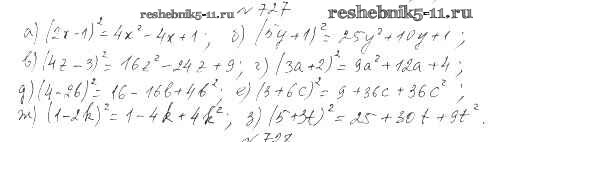 reshebnik5-11.ru № 727 reshebnik5-11.ru
а) (2x-1)² = 4x² - 4x + 1 ; б) (5y+1)² = 25y² + 10y + 1 ;
в) (4z-3)² = 16z² - 24z + 9 ; г) (3a+2)² = 9a² + 12a + 4 ;
д) (4-2b)² = 16 - 16b + 4b² ; е) (3+6c)² = 9 + 36c + 36c² ;
ж) (1-2k)² = 1 - 4k + 4k² ; з) (5+3t)² = 25 + 30t + 9t² .
№ 728